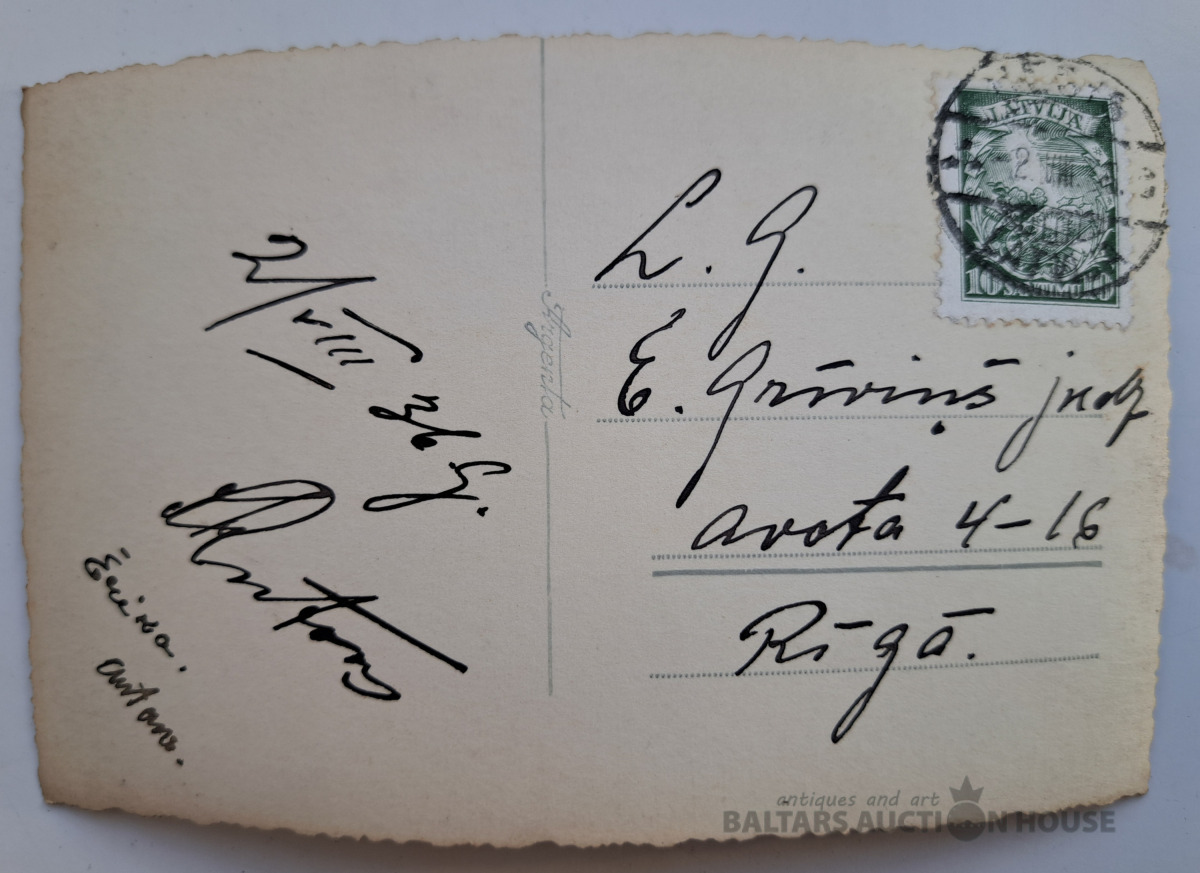 2/VIII 36 g.
Antons
antons.
Argenta
LATVIJA
2. VIII
10 SANTIMU 10
L. g.
E. Grīviņš jkdz
avota 4-16
Rīgā.
antiques and art
BALTARS AUCTION HOUSE